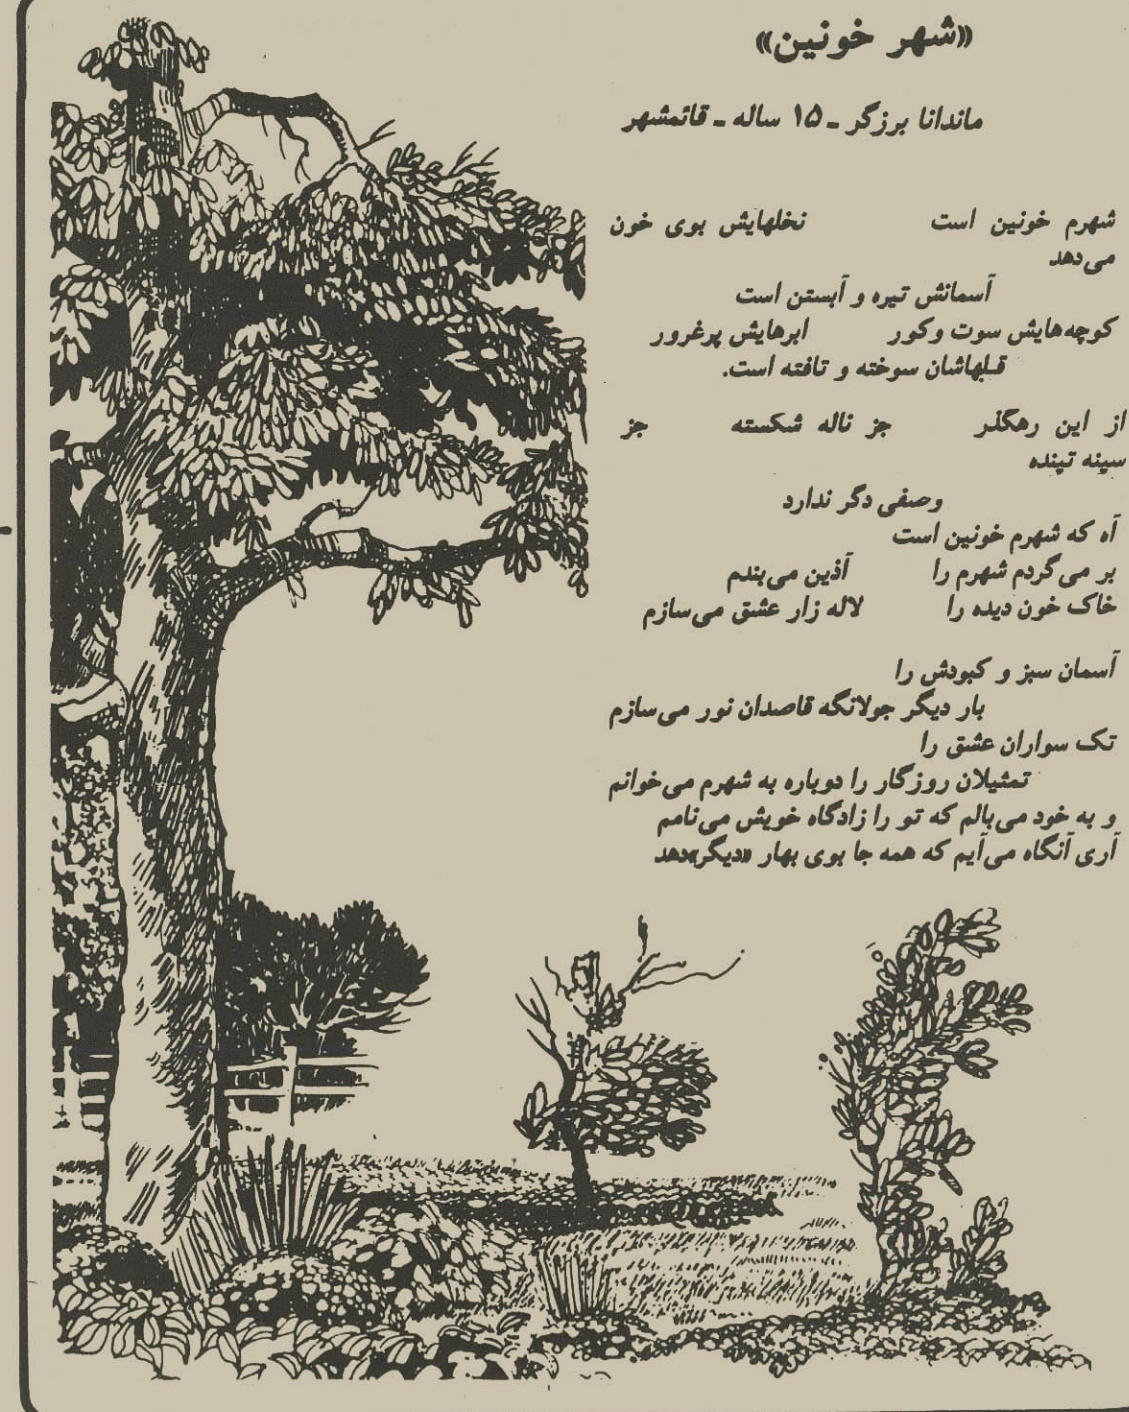 «شهر خونین»
ماندانا برزگر ـ ۱۵ ساله ـ قائمشهر
شهرم خونین است نخلهایش بوی خون
می‌دهد
آسمانش تیره و آبستن است
کوچه‌هایش سوت وکور ابرهایش پرغرور
قلبهاشان سوخته و تافته است.
از این رهگذر جز ناله شکسته جز
سینه تپنده
وصفی دگر ندارد
آه که شهرم خونین است
بر می‌گردم شهرم را آذین می‌بندم
خاک خون دیده را لاله زار عشق می‌سازم
آسمان سبز و کبودش را
بار دیگر جولانگه قاصدان نور می‌سازم
تک سواران عشق را
تمثیلان روزگار را دوباره به شهرم می‌خوانم
و به خود می‌بالم که تو را زادگاه خویش می‌نامم
آری آنگاه می‌آیم که همه جا بوی بهار «دیگر»دهد